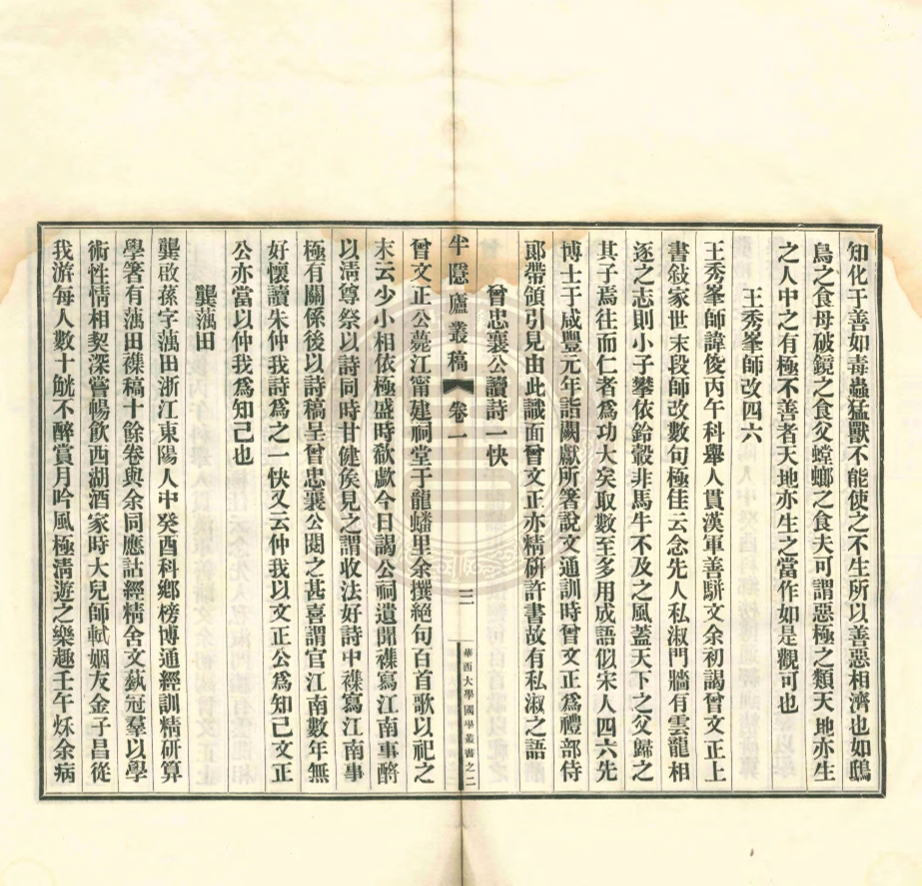 知化于善如毒蟲猛獸不能使之不生所以善惡相濟也如鴟
鳥之食母破鏡之食父螳螂之食夫可謂惡極之類天地亦生
之人中之有極不善者天地亦生之當作如是觀可也
王秀峯師改四六
王秀峯師諱俊丙午科舉人貫漢軍善駢文余初謁曾文正上
書敍家世末段師改數句極佳云念先人私淑門牆有雲龍相
逐之志則小子攀依鈴轂非馬牛不及之風蓋天下之父歸之
其子焉往而仁者為功大矣取數至多用成語似宋人四六先
博士于咸豐元年詣闕獻所箸說文通訓時曾文正為禮部侍
郎帶領引見由此識面曾文正亦精研許書故有私淑之語
曾忠襄公讀詩一快
半隱廬叢稿
卷一
三
華西大學國學叢書之二
曾文正公薨江甯建祠堂于龍蟠里余撰絕句百首歌以祀之
末云少小相依極盛時欷歔今日謁公祠遺聞襍寫江南事酹
以清尊祭以詩同時甘健矦見之謂收法好詩中襍寫江南事
極有關係後以詩稿呈曾忠襄公閱之甚喜謂官江南數年無
好懷讀朱仲我詩為之一快又云仲我以文正公為知己文正
公亦當以仲我為知己也
龔藕田
龔啟蓀字藕田浙江東陽人中癸酉科鄉榜博通經訓精研算
學箸有藕田襍稿十餘卷與余同應詁經精舍文埶冠羣以學
術性情相契深嘗暢飲西湖酒家時大兒師軾姻友金子昌從
我游每人數十觥不醉賞月吟風極清遊之樂趣壬午秌余病